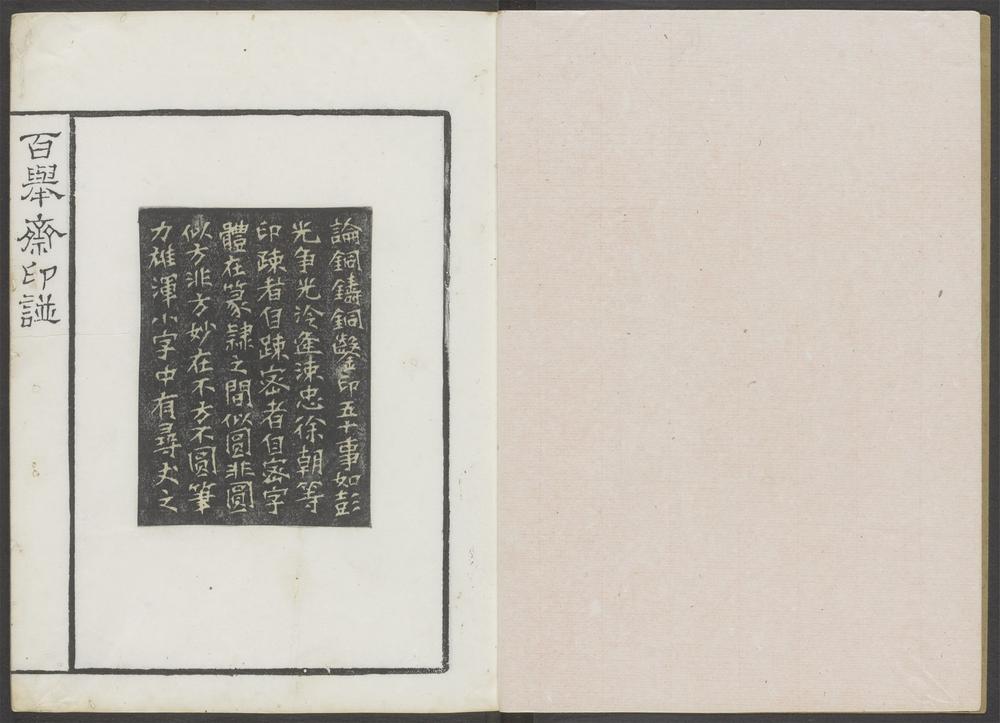 論銅鑄銅鑿印五十事如彭
光爭光冷逢涑忠徐朝等
印疎者自疎密者自密字
體在篆隸之間似圓非圓
似方非方妙在不方不圓筆
力雄渾小字中有尋丈之
百舉齋印譜